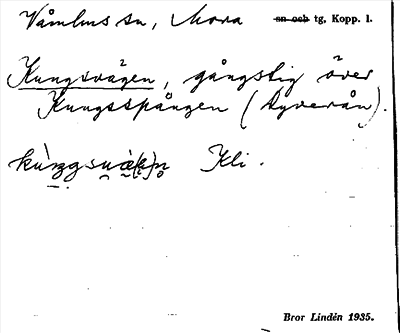 Våmhus sn, Mora sn och tg, Kopp. l.
Kungsvägen, gångstig över
Kungsspången (Ryverån).
Kli.
Bror Lindén 1935.